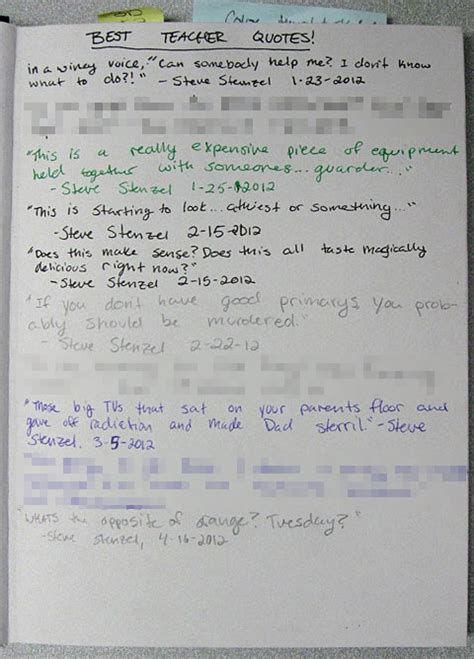 BEST TEACHER QUOTES!
in a winey voice, "Can somebody help me? I don't know
what to do?!" - Steve Stenzel 1-23-2012
"This is a really expensive piece of equipment
held together with someones... guarder..."
- Steve Stenzel 1-25-2012
"This is starting to look... athiest or something..."
- Steve Stenzel 2-15-2012
"Does this make sense? Does this all taste magically
delicious right now?"
- Steve Stenzel 2-15-2012
"If you don't have good primarys you prob-
ably should be murdered."
- Steve Stenzel 2-22-12
"Those big TVs that sat on your parents floor and
gave off radiation and made Dad sterril." - Steve
Stenzel. 3-5-2012
"WHATS the opposite of orange? Tuesday?"
- Steve Stenzel, 4-16-2012